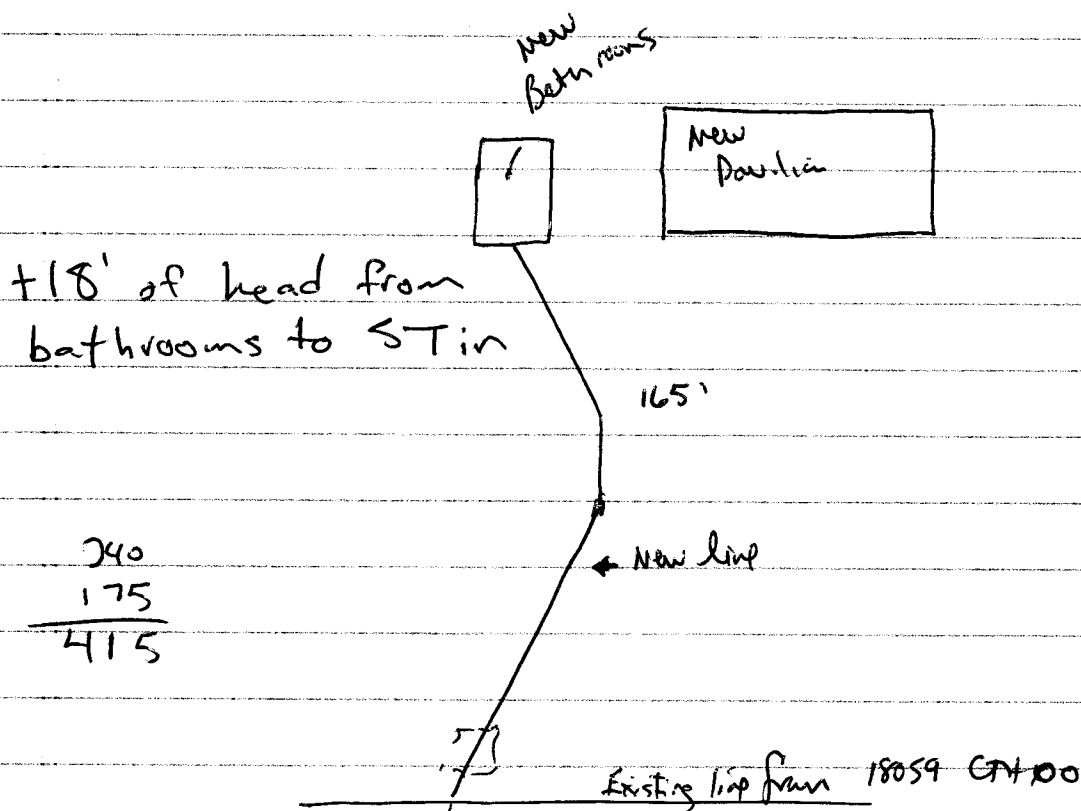 New
Bathrooms
New
Pavilion
+18' of head from
bathrooms to ST in
165'
New line
240
175
415
Existing line from 18059